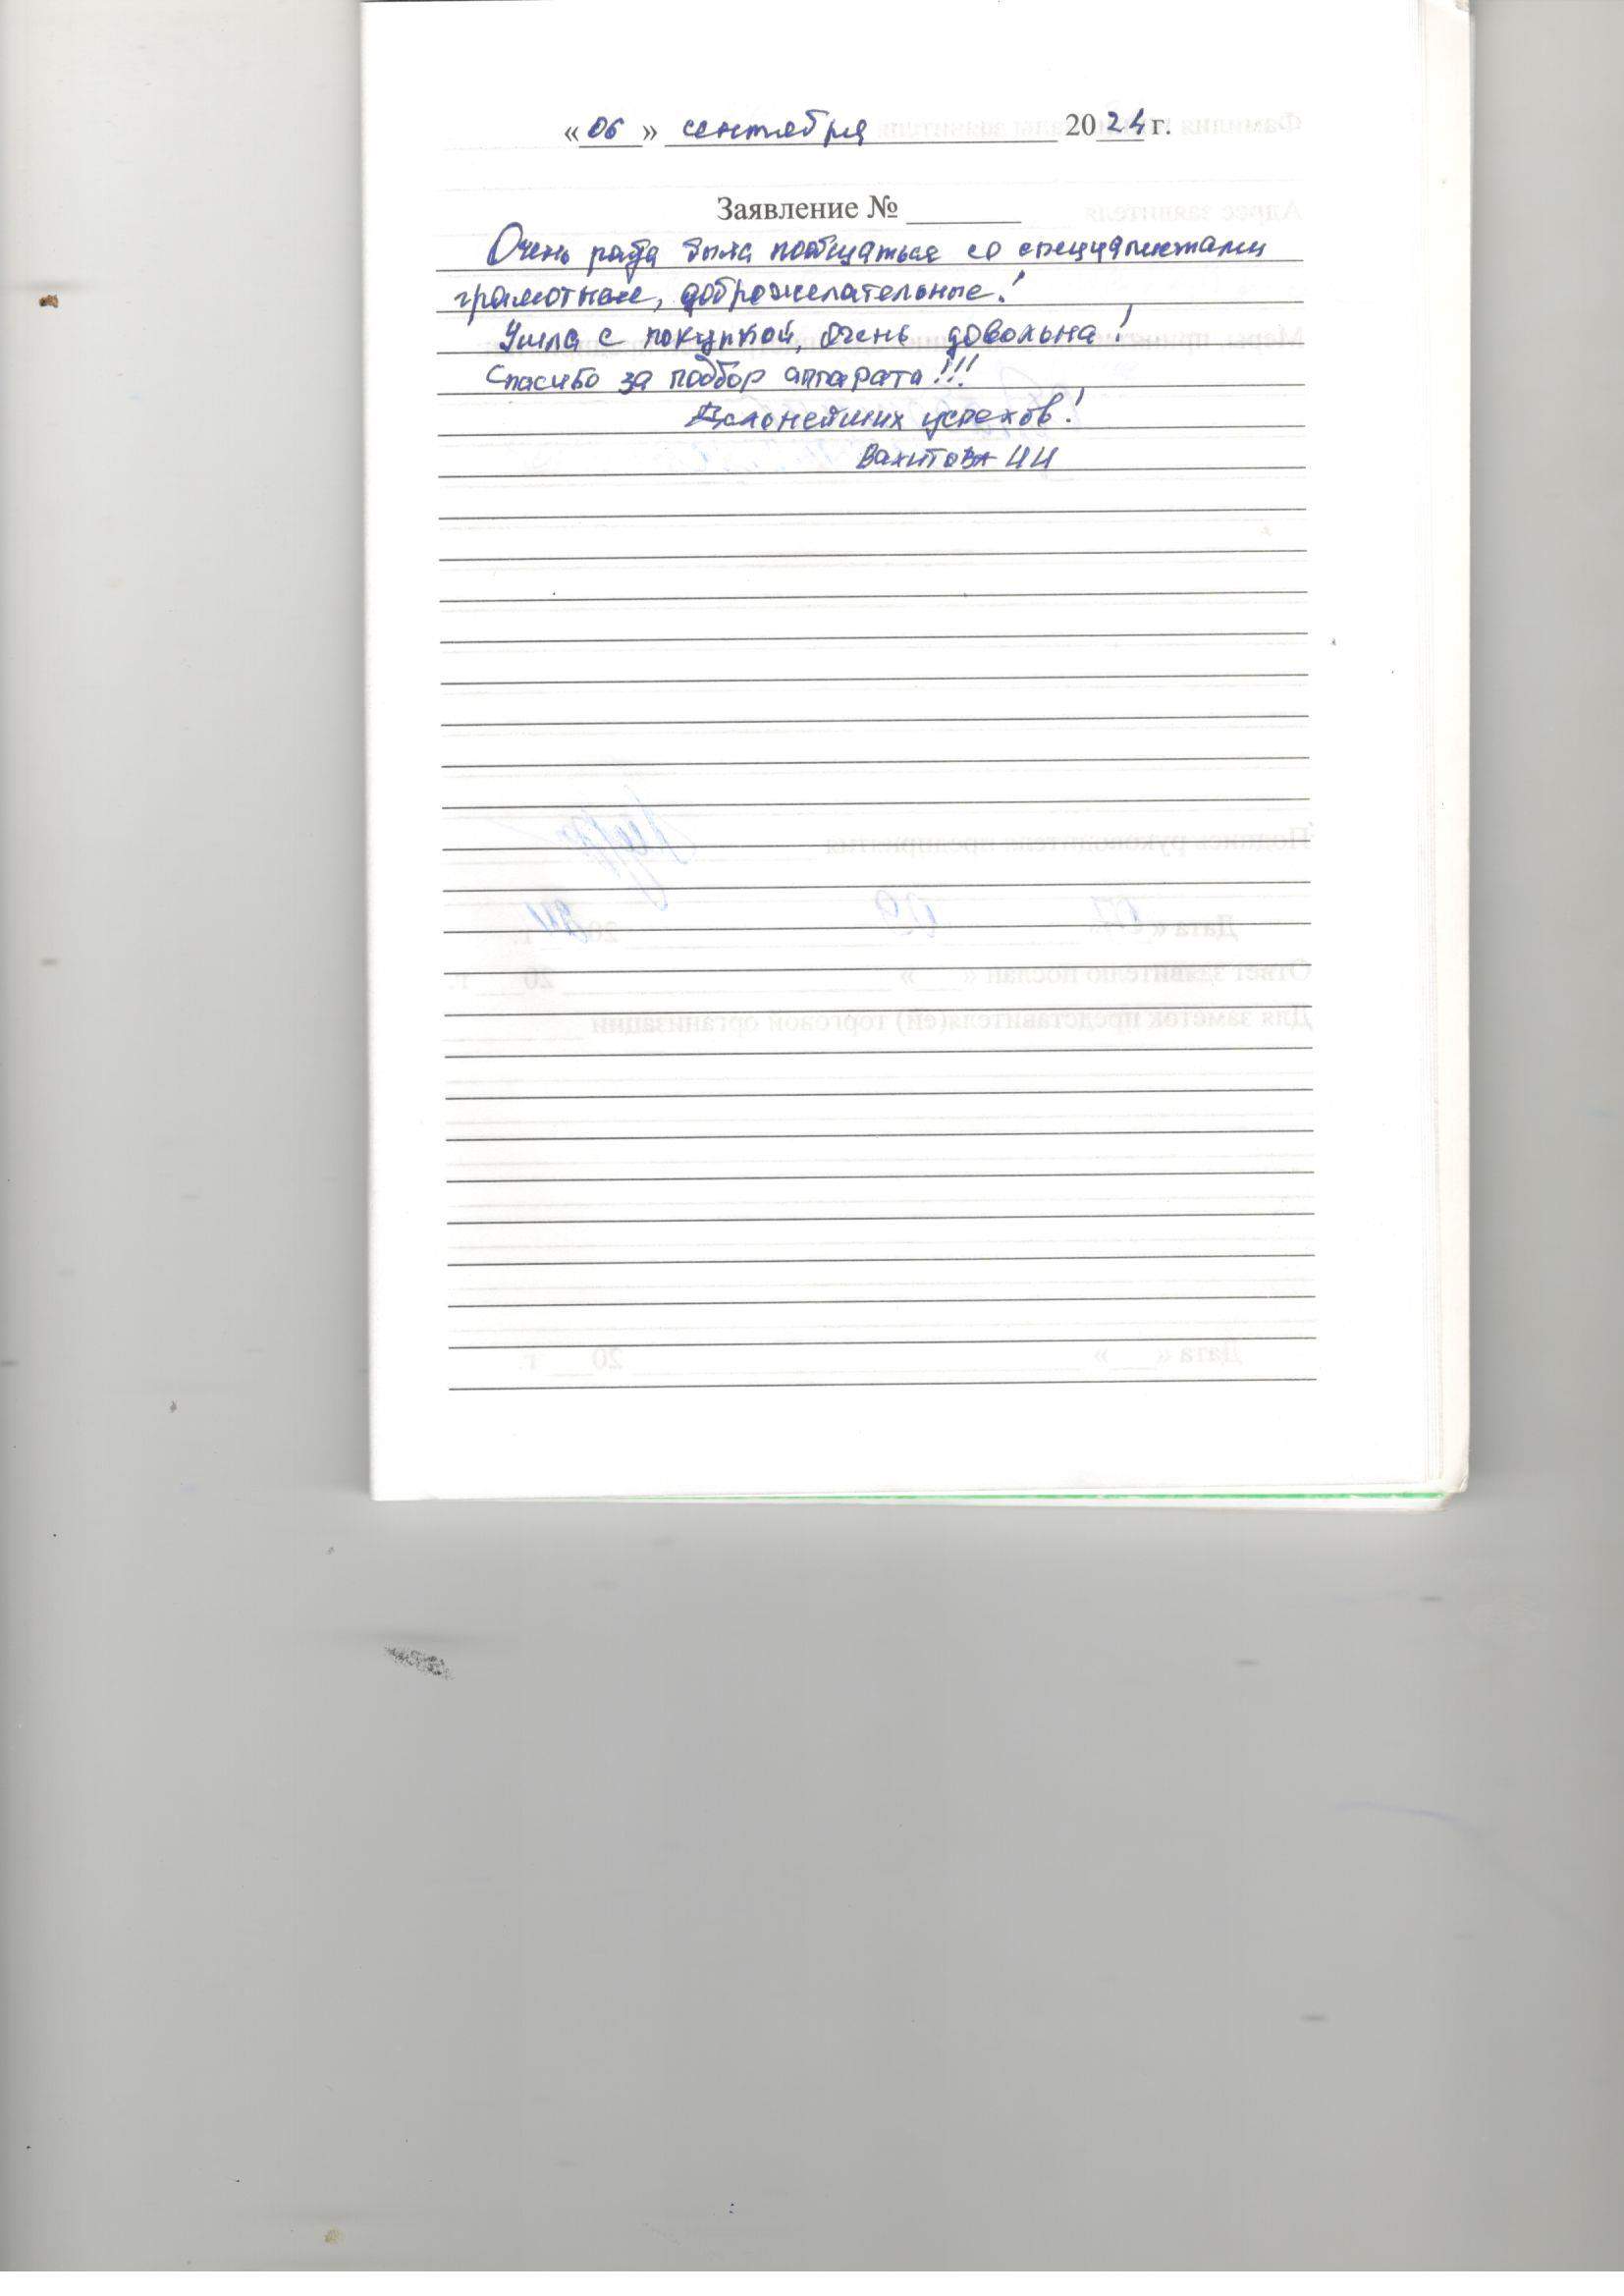 «06» сентября 2024 г.
Заявление № ______
Очень рада была пообщаться со специалистами
грамотные, доброжелательные!
Ушла с покупкой, очень довольна!
Спасибо за подбор аппарата!!!
Дальнейших успехов!
Вахитова ИИ